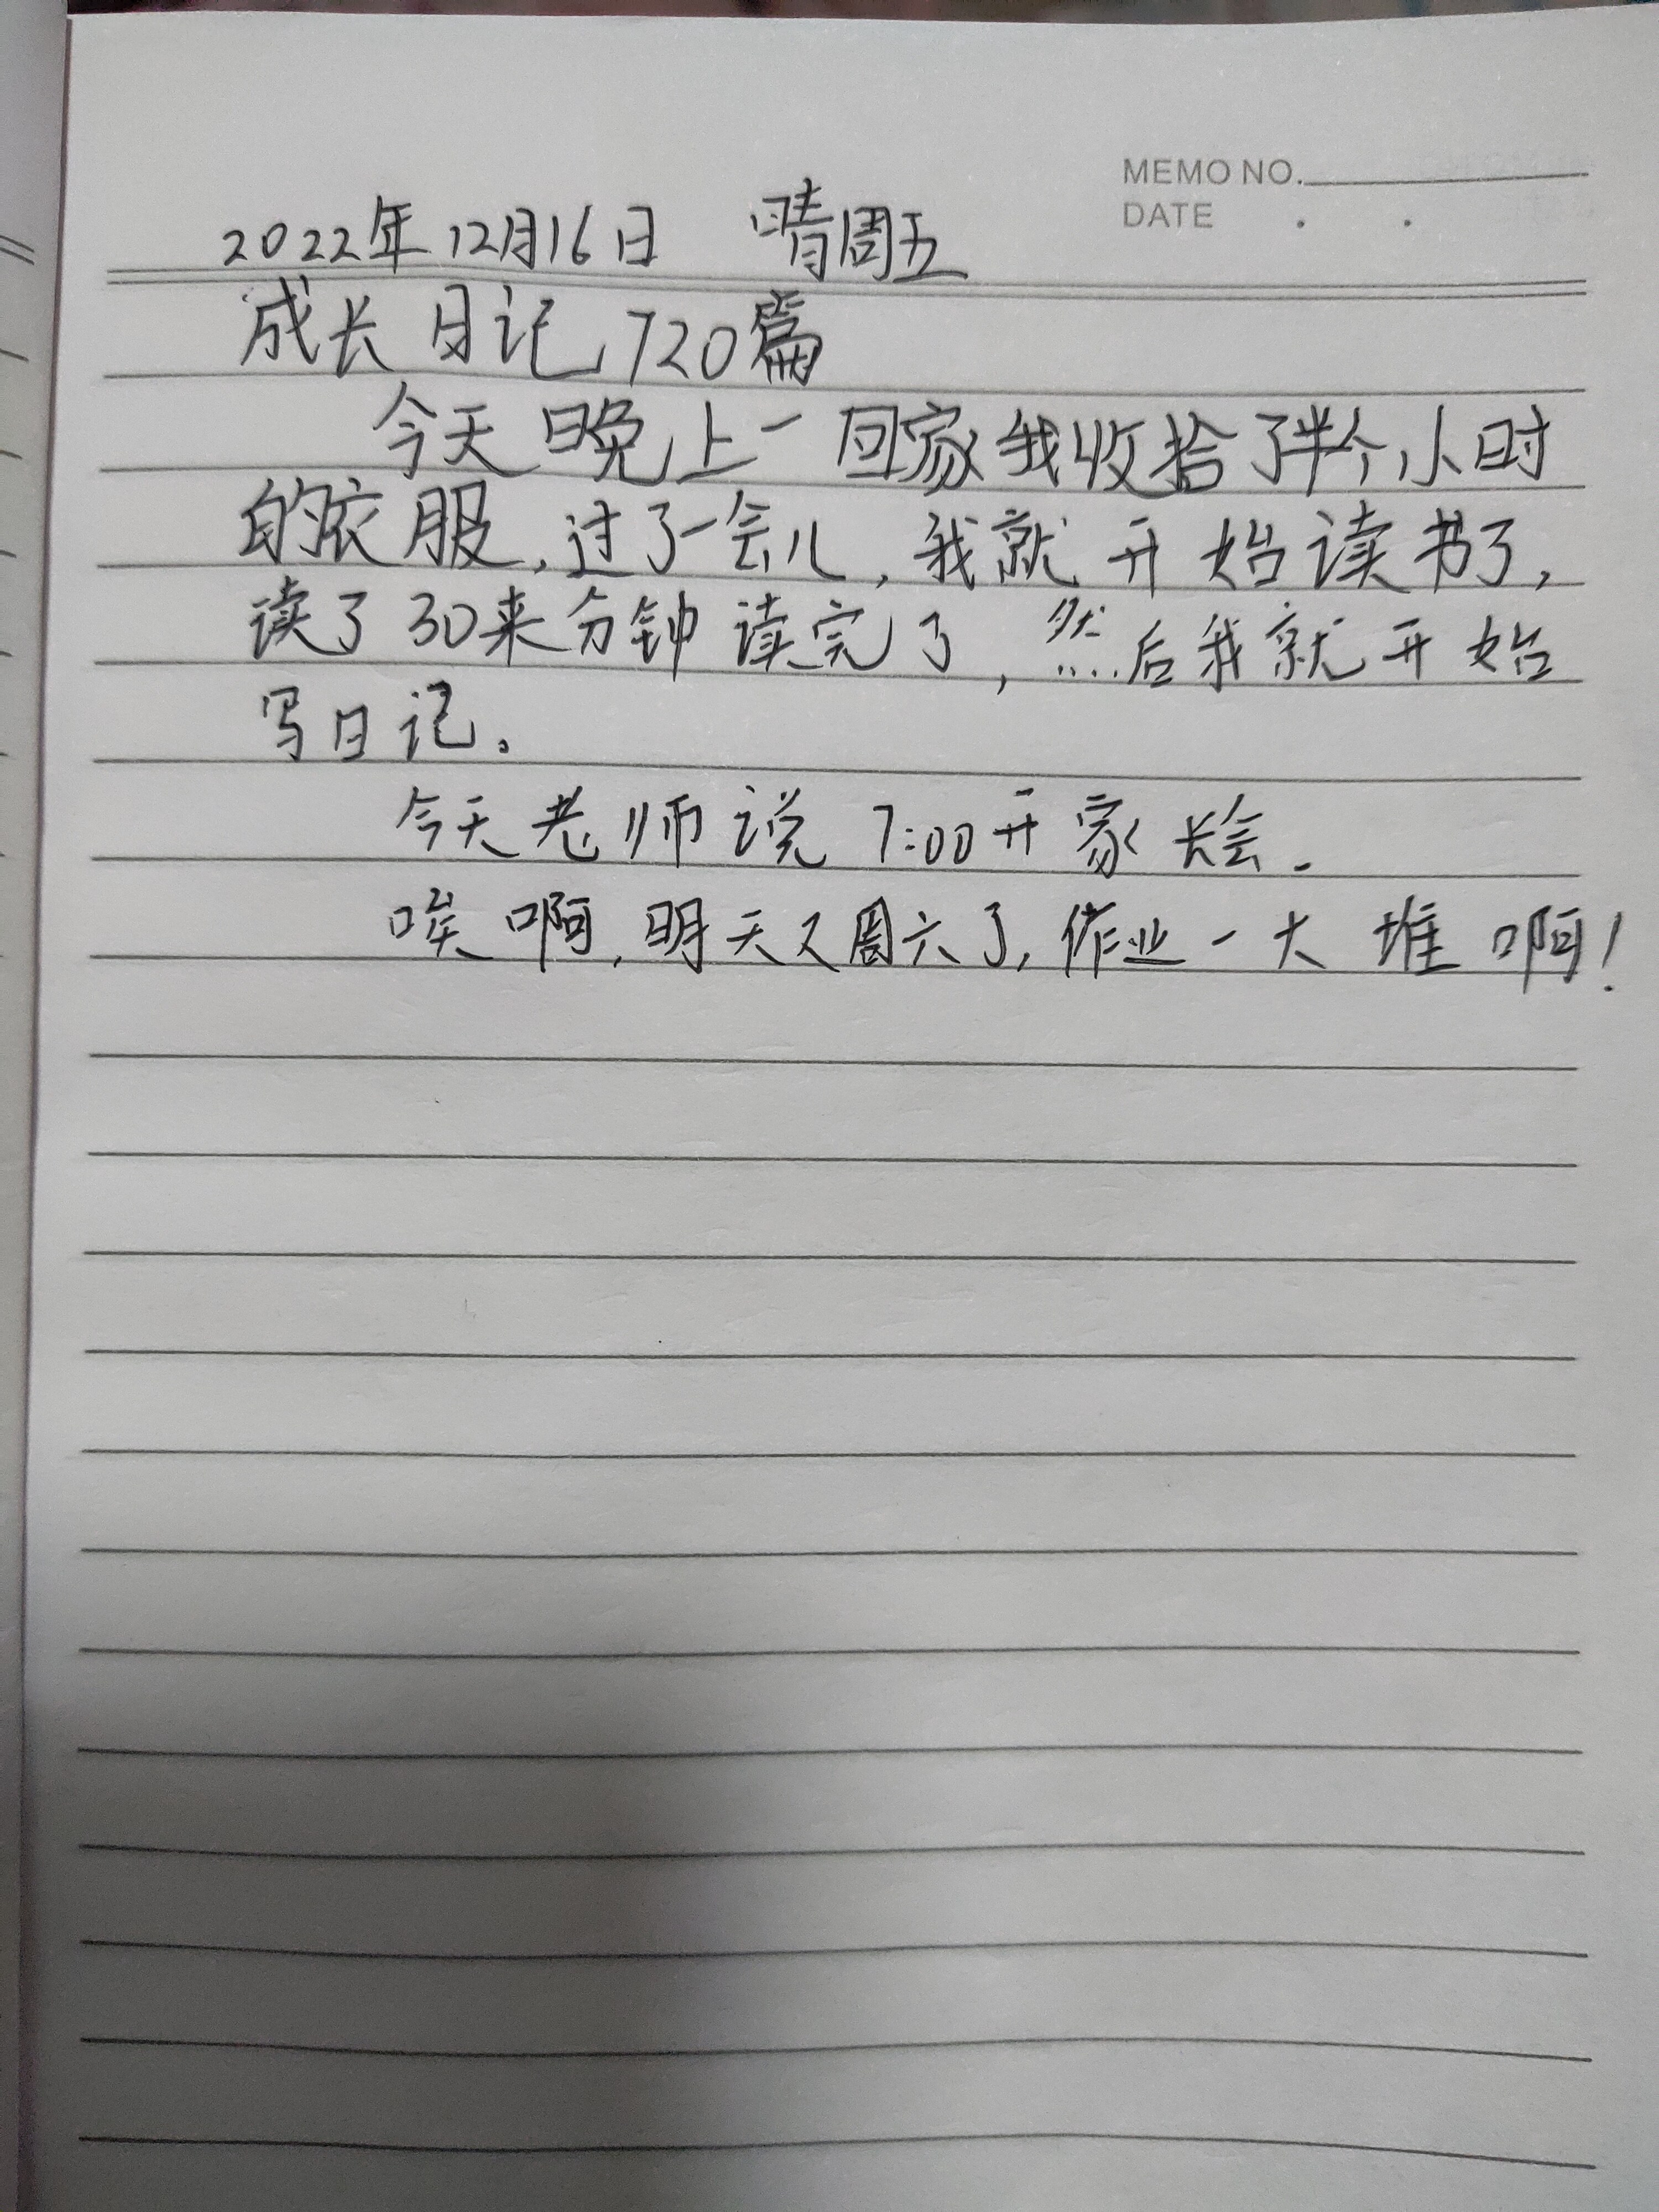 MEMO NO.
DATE . .
2022年12月16日 晴周五
成长日记720篇
今天晚上一回家我收拾了半个小时
的衣服,过了一会儿,我就开始读书了,
读了30来分钟读完了,然后我就开始
写日记。
今天老师说7:00开家长会.
唉啊,明天又周六了,作业一大堆啊!